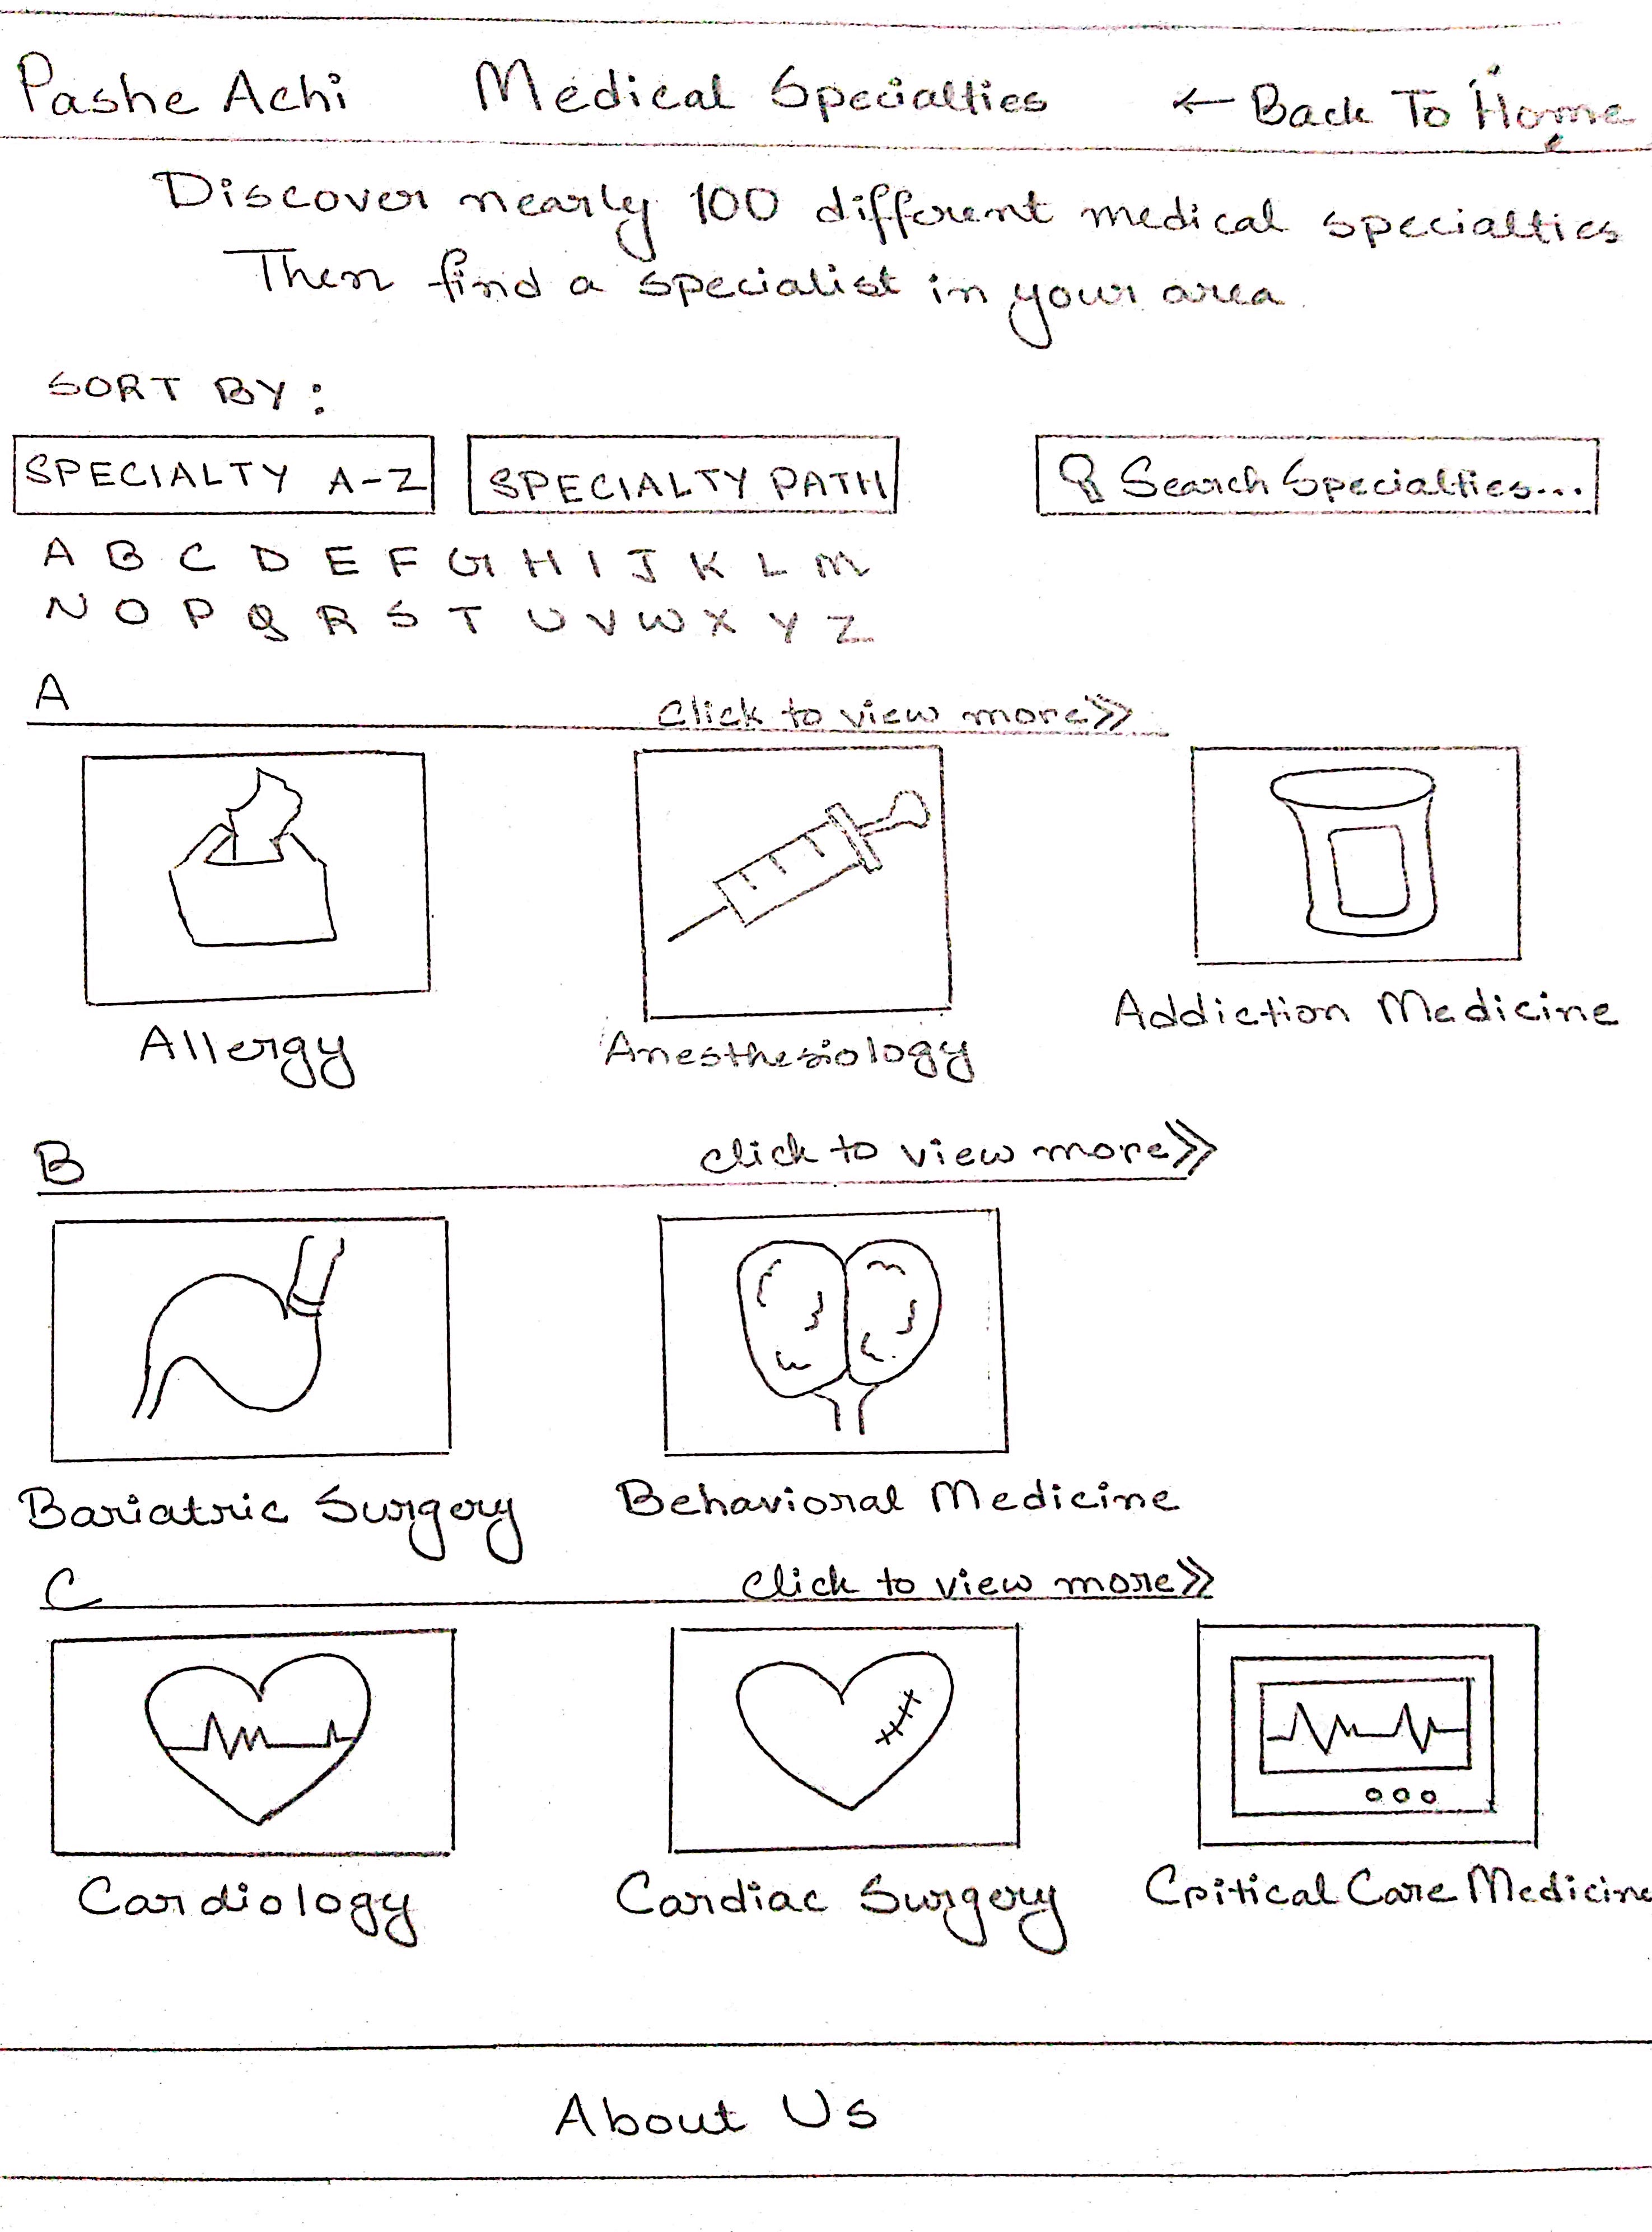 Pashe Achi Medical Specialties ← Back To Home
Discover nearly 100 different medical specialties
Then find a specialist in your area.
SORT BY:
SPECIALTY A-Z SPECIALTY PATH Search Specialties...
A B C D E F G H I J K L M
N O P Q R S T U V W X Y Z
A click to view more>>
Allergy Anesthesiology Addiction Medicine
B click to view more>>
Bariatric Surgery Behavioral Medicine
C click to view more>>
Cardiology Cardiac Surgery Critical Care Medicine
About Us